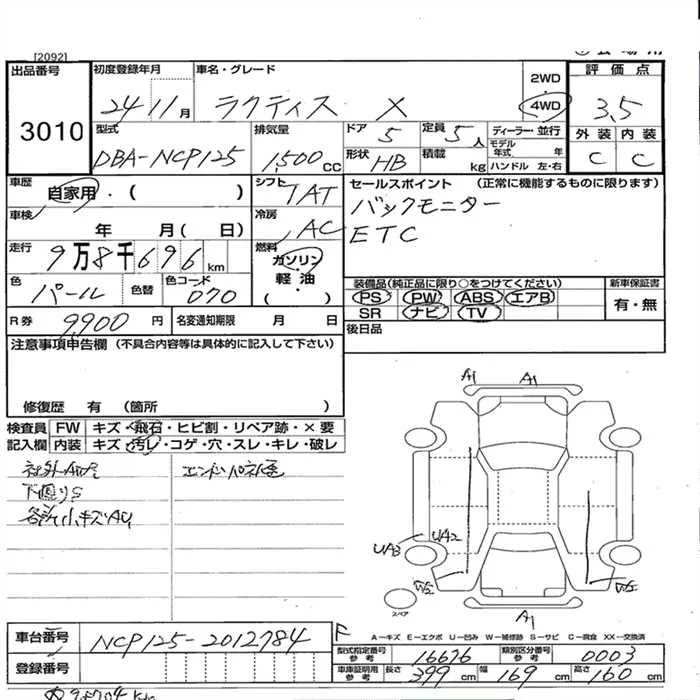 [2092]
出品番号
3010
初度登録年月
24 11月
車名・グレード
ラクティス X
2WD
4WD
評価点
3.5
外装 内装
C C
型式
DBA-NCP125
排気量
1,500 CC
ドア 5
定員 5人
ディーラー・並行
モデル年式 年
形状 HB
積載 kg
ハンドル 左・右
車歴
自家用・( )
シフト IAT
セールスポイント (正常に機能するものに限ります)
バックモニター
ETC
車検
年 月( 日)
冷房 AC
走行
9万8千696km
燃料
ガソリン・軽油・( )
色 パール
色替
色コード 070
装備品(純正品に限り○をつけてください)
PS PW ABS エアB
SR ナビ TV
新車保証書
有・無
R券 9,900円
名変通知期限 月 日
後日品
注意事項申告欄 (不具合内容等は具体的に記入して下さい)
修復歴 有 (箇所 )
検査員記入欄
FW キズ・飛石・ヒビ割・リペア跡・×要
内装 キズ・汚レ・コゲ・穴・スレ・キレ・破レ
下廻りS
各所小キズA1
A1 A1
UA3 UA2
A1
スペア
A-キズ E-エクボ U-凹み W-補修跡 S-サビ C-腐食 XX-交換済
車台番号
NCP125-2012784
F
登録番号
型式指定番号 参考 16676
類別区分番号 参考 0003
車庫証明用 参考
長さ 399cm
幅 169cm
高さ 160cm